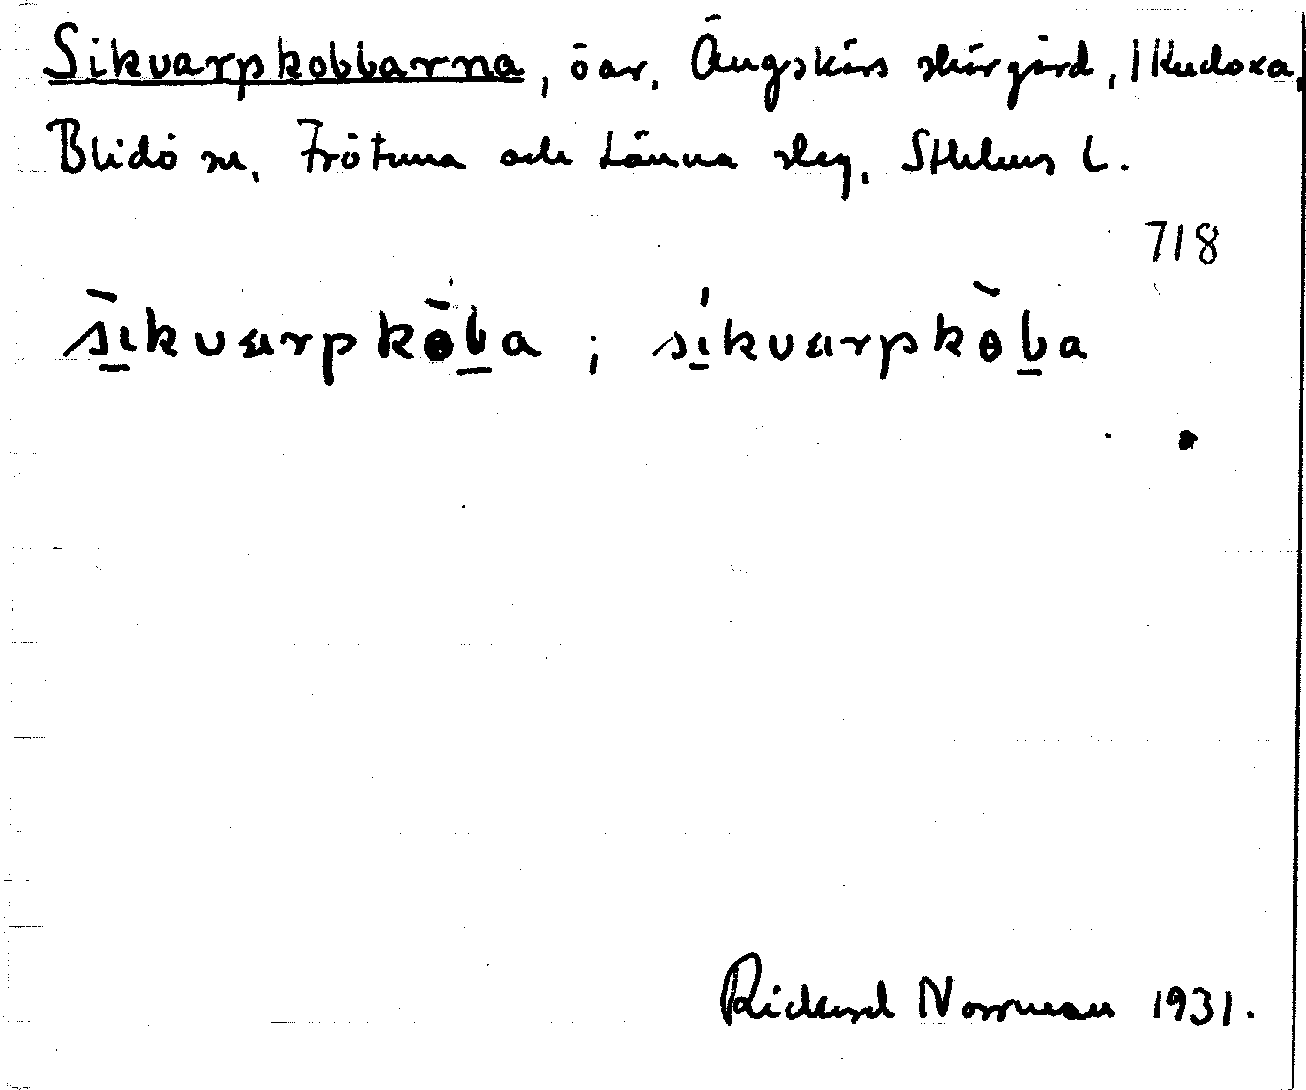 Sikvarpkobbarna, öar, Ängskärs skärgård, / Kudoxa,
Blidö sn, Frötuna och Länna skg, Sthlms l.
718
sikvarpkoba ; sikvarpkoba
Rickard Norrman 1931.